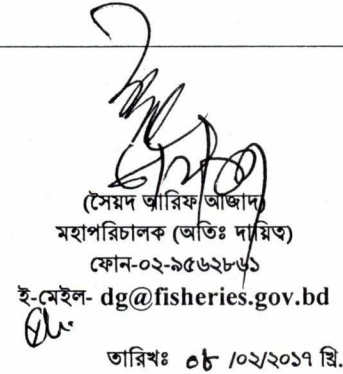 (সৈয়দ আরিফ আজাদ)
মহাপরিচালক (অতিঃ দায়িত্ব)
ফোন-০২-৯৫৬২৮৬১
ই-মেইল- dg@fisheries.gov.bd
তারিখঃ ০৮ /০২/২০১৭ খ্রি.